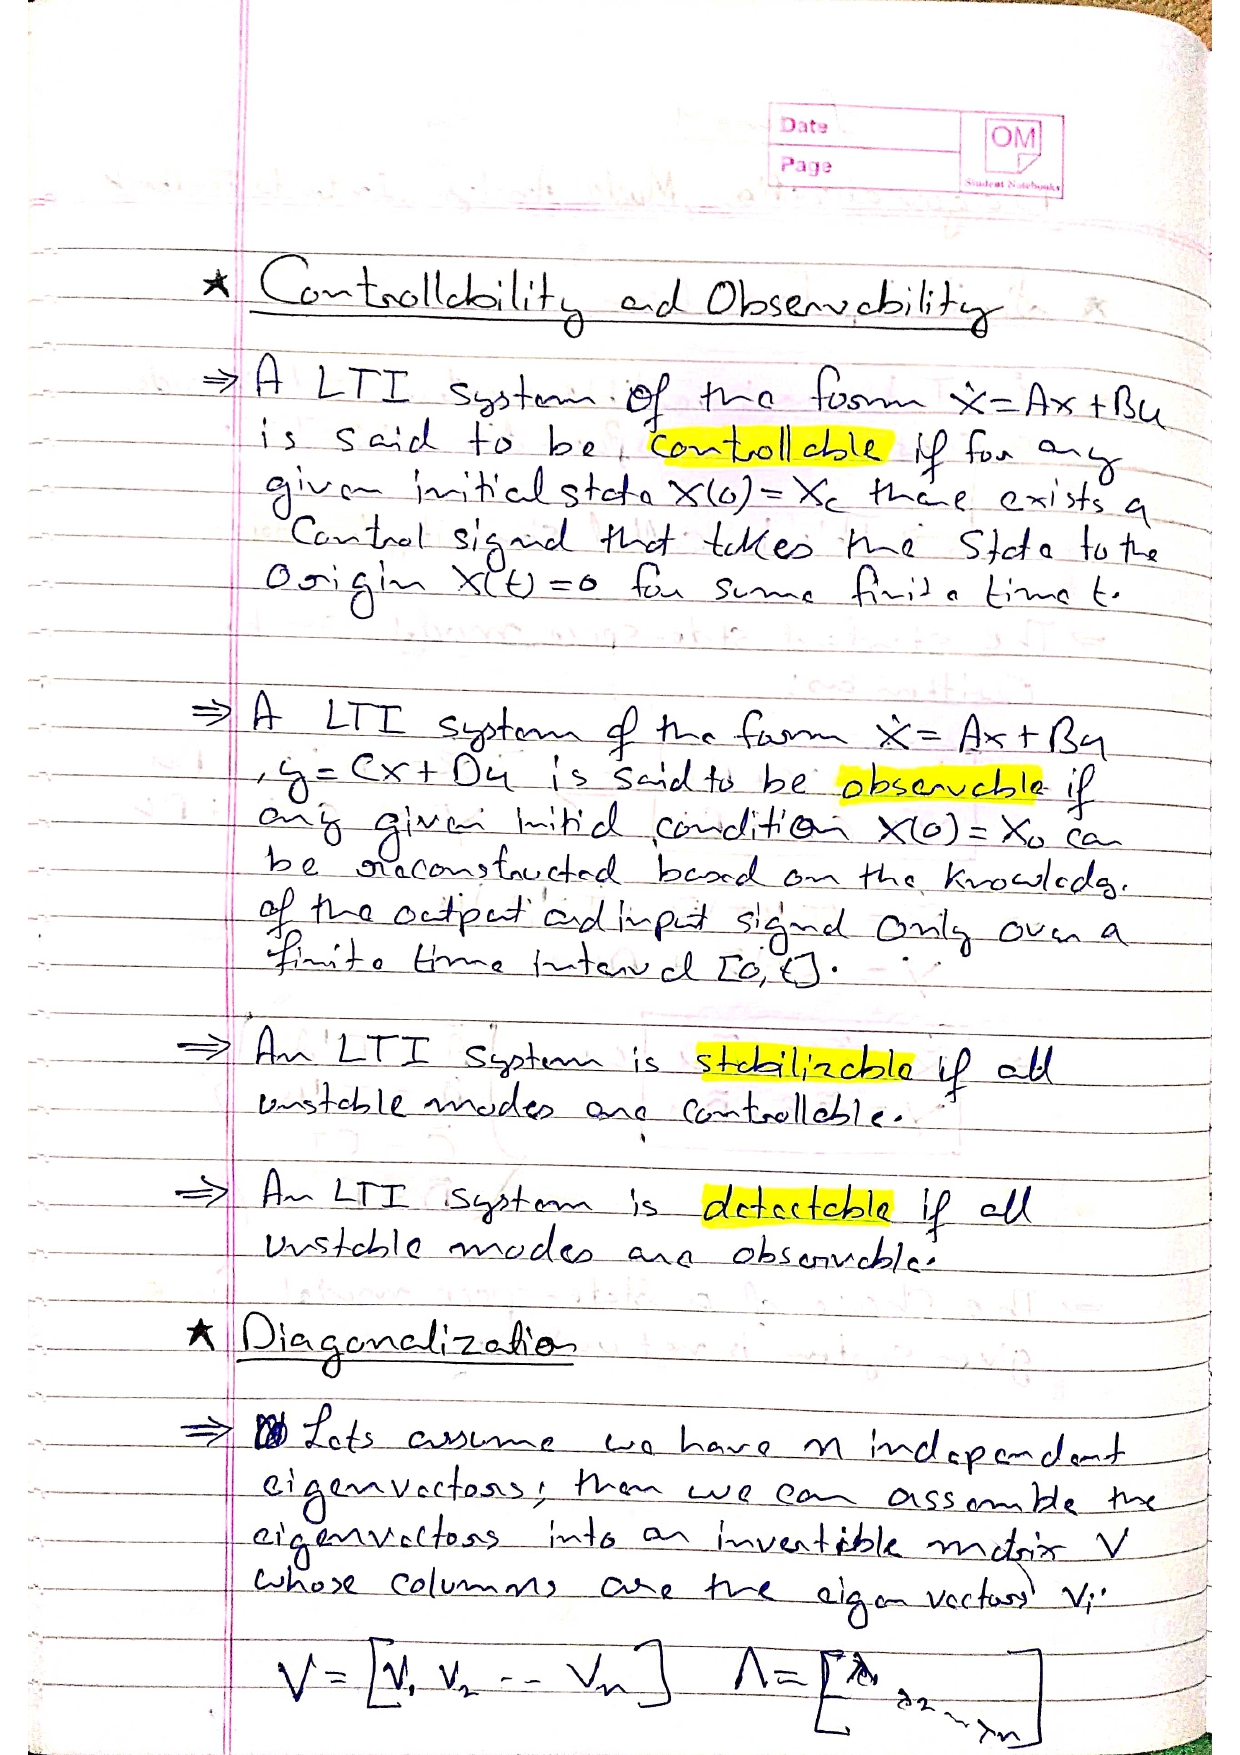 Date
Page
OM
Student Notebooks
★ Controllability and Observability
⇒ A LTI system of the form ẋ = Ax + Bu
is said to be controllable if for any
given initial state x(0) = x₀ there exists a
Control signal that takes the State to the
Origin x(t) = 0 for some finite time t.
⇒ A LTI system of the form ẋ = Ax + Bu
, y = Cx + Du is said to be observable if
any given initial condition x(0) = x₀ can
be reconstructed based on the knowledge.
of the output and input signal only over a
finite time interval [0, t].
⇒ An LTI system is stabilizable if all
unstable modes are controllable.
⇒ An LTI system is detectable if all
unstable modes are observable.
★ Diagonalization
⇒ Lets assume we have n independent
eigenvectors; then we can assemble the
eigenvectors into an invertible matrix V
whose columns are the eigen vectors vᵢ:
V = [v₁ v₂ -- vₙ] Λ = [λ₁ λ₂ -- λₙ]